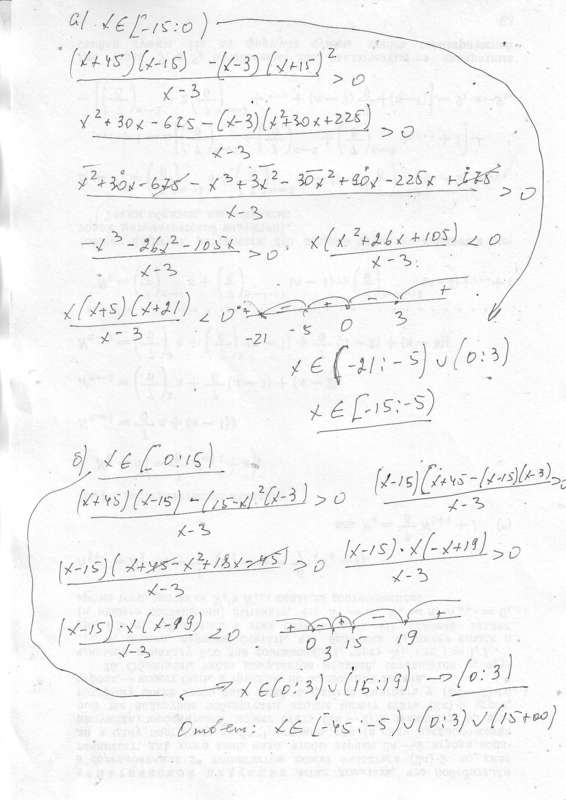 а) x∈[-15:0)
((x+45)(x-15) -(x-3)(x+15)²)/(x-3) > 0
(x²+30x-675-(x-3)(x²+30x+225))/(x-3) > 0
(x²+30x-675-x³+3x²-30x²+90x-225x+675)/(x-3) > 0
(-x³-26x²-105x)/(x-3) > 0. (x(x²+26x+105))/(x-3) < 0
(x(x+5)(x+21))/(x-3) < 0 + - + - +
-21 -5 0 3
x∈(-21:-5)∪(0:3)
x∈[-15:-5)
б) x∈[0:15)
((x+45)(x-15)-(15-x)²(x-3))/(x-3) > 0 ((x-15)(x+45-(x-15)(x-3))/(x-3) > 0
((x-15)(x+45-x²+18x-45))/(x-3) > 0 ((x-15)·x(-x+19))/(x-3) > 0
((x-15)·x(x-19))/(x-3) < 0 + - + - +
0 3 15 19
x∈(0:3)∪(15:19) → (0:3)
Ответ: x∈[-45:-5)∪(0:3)∪(15+∞)